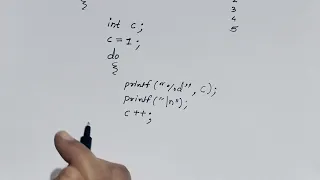 {
int c;
c = 1;
do
{
printf("%d", c);
printf("\n");
c++;
2
3
4
5